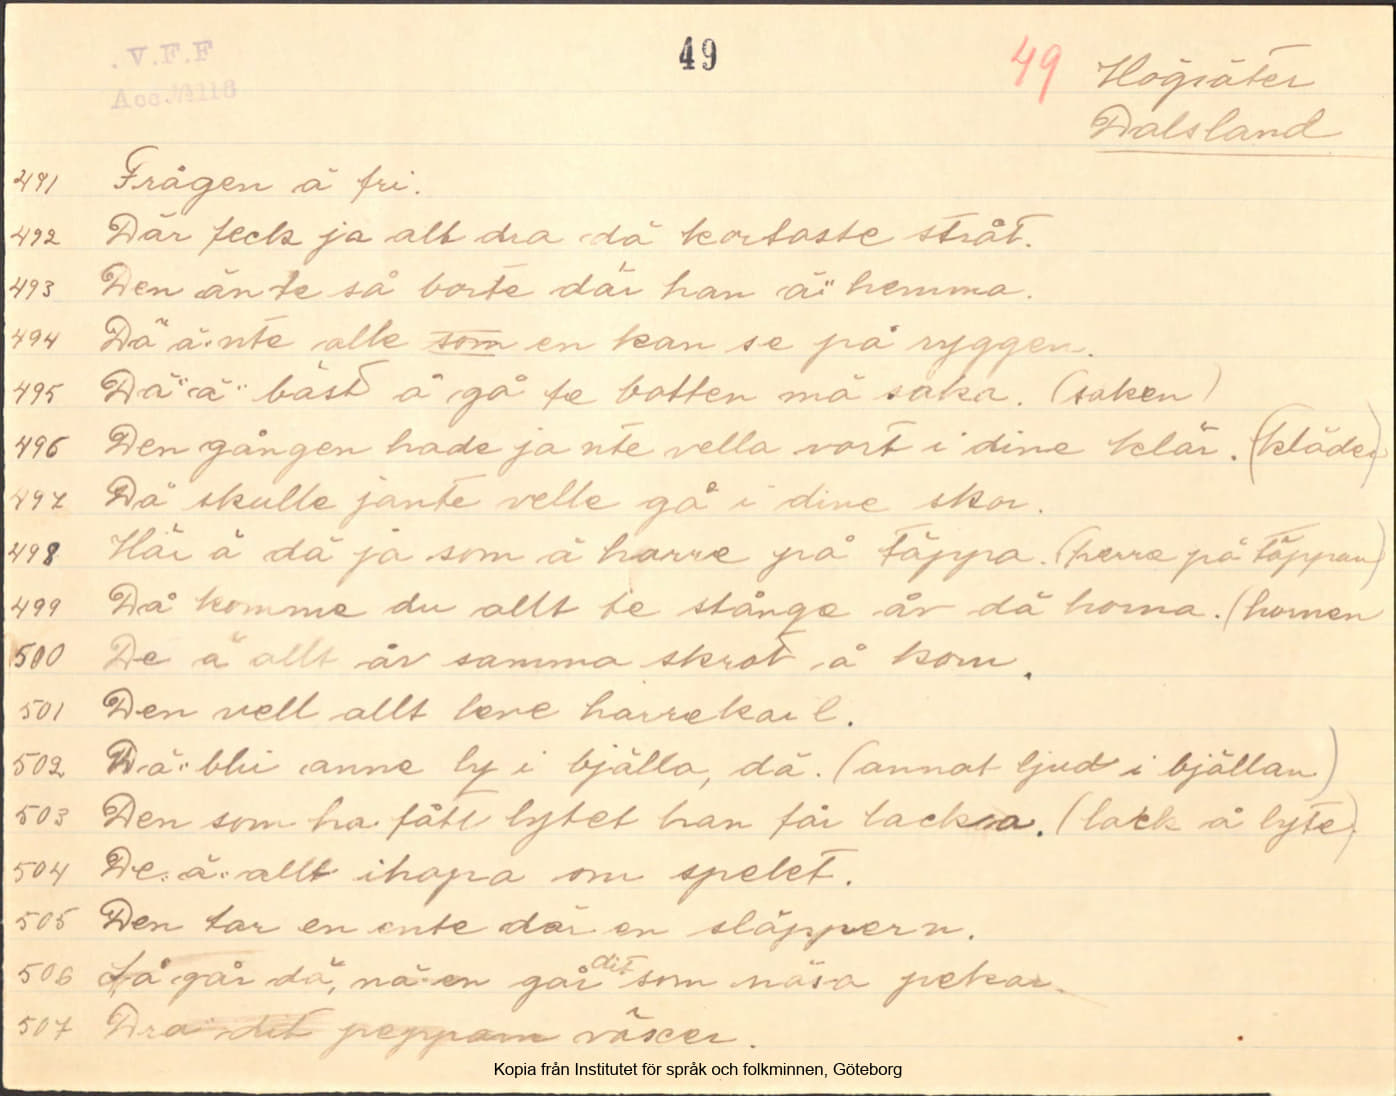 V.F.F
49
49
Högsäter
Acc. № 118
Dalsland
491 Frågen ä fri.
492 Där feck ja allt dra dä kortaste stråt.
493 Den änte så borte där han ä hemma.
494 Dä ä nte alle som en kan se på ryggen.
495 Dä ä bäst å gå te botten mä saka. (saken)
496 Den gången hade ja nte vella vart i dine klär. (kläder)
497 Dä skulle jante velle gå i dine skor.
498 Här ä dä ja som ä harre på täppa. (herre på täppan)
499 Då komme du allt te stånge åv dä horna. (hornen
500 De ä allt åv samma skrot å korn.
501 Den vell allt leve harrekarl.
502 Dä bli anne ly i bjälla, dä. (annat ljud i bjällan)
503 Den som ha fått lytet han får lacka. (lack å lyte)
504 De ä allt ihopa om spelet.
505 Den tar en ente där en släppern.
506 Så går dä, nä en går dit som näsa pekar.
507 Dra dit pepparn växer.
Kopia från Institutet för språk och folkminnen, Göteborg